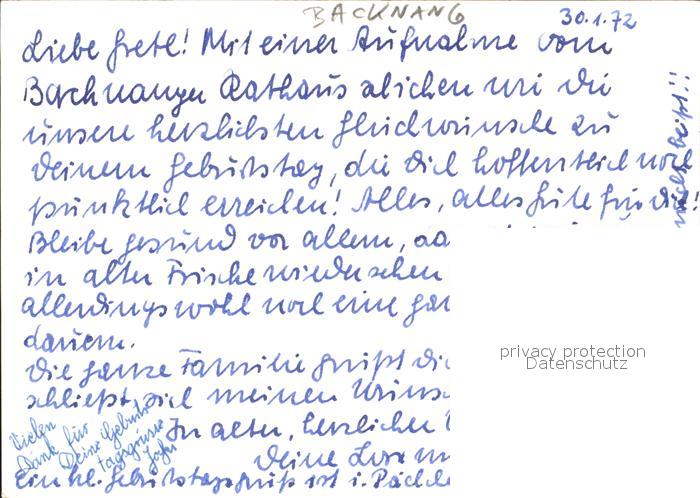 BACKNANG
30.1.72
Liebe Gretl! Mit einer Aufnahme vom
Backnanger Rathaus schicken wir dir
unsere herzlichsten Glückwünsche zu
deinem Geburtstag, die dich hoffentlich noch
pünktlich erreichen! Alles, alles Gute für dich!
Bleibe gesund vor allem,
in alter Frische wiedersehen
allerdings wohl noch eine gan
dauern.
Die ganze Familie grüßt dic
schließt sich meinen Wünsc
In alter, herzlicher
Deine
Ein kl. Geburtstagsgruß ist i. Päckc
Vielen
Dank für
Deine Geburts
tagsgrüsse
privacy protection
Datenschutz